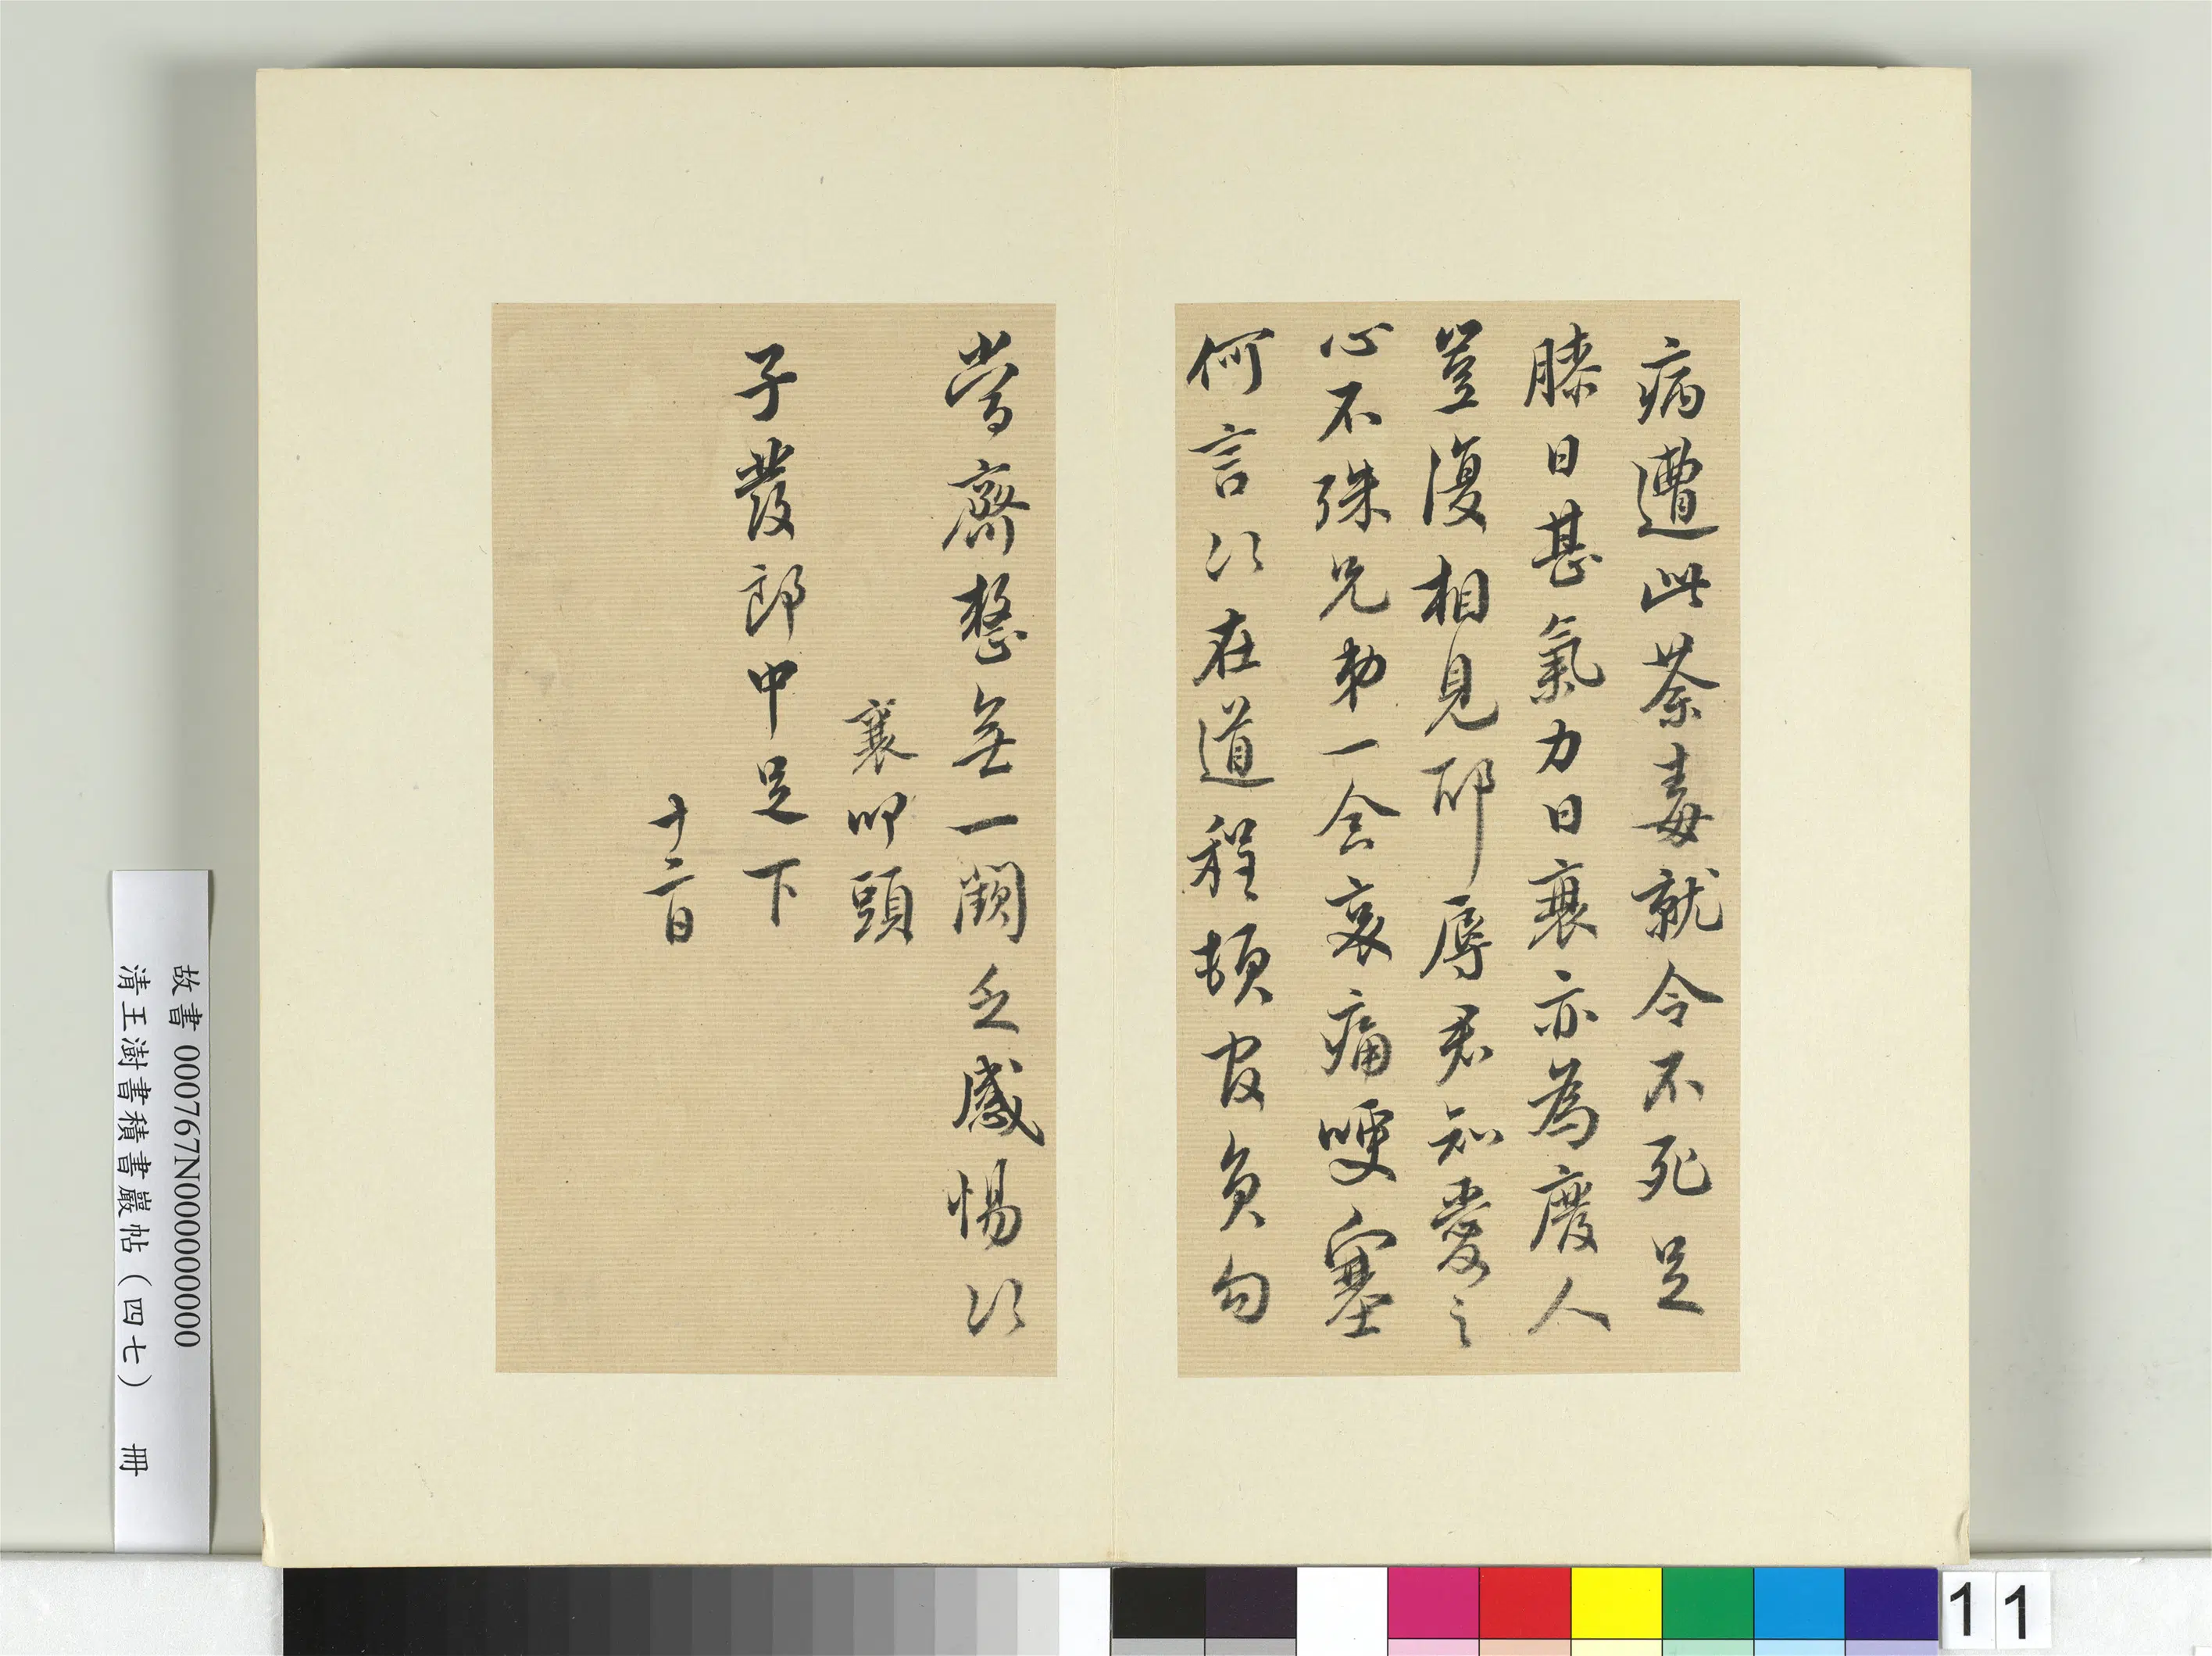 病遭此荼毒就令不死足
膝日甚氣力日衰亦為廢人
豈復相見邪辱君知愛之
心不殊兄弟一念哀痛哽塞
何言〻〻在道程頓官員勾
當齋整無一闕乏感惕〻〻
襄叩頭
子發郎中足下
十二日
故書 000767N000000000
清王澍書積書巖帖（四七） 冊
11